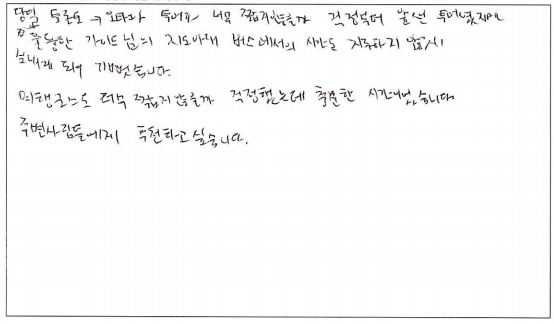 당일 토론토 → 오타와 투어가 너무 짧지않을까 걱정부터 앞선 투어였지만
훌륭한 가이드님의 지도아래 버스에서의 시간도 지루하지 않게
보내게 되어 기뻤습니다.
여행코스도 너무 짧지 않을까 걱정했는데 충분한 시간이었습니다
주변사람들에게 추천하고 싶습니다.